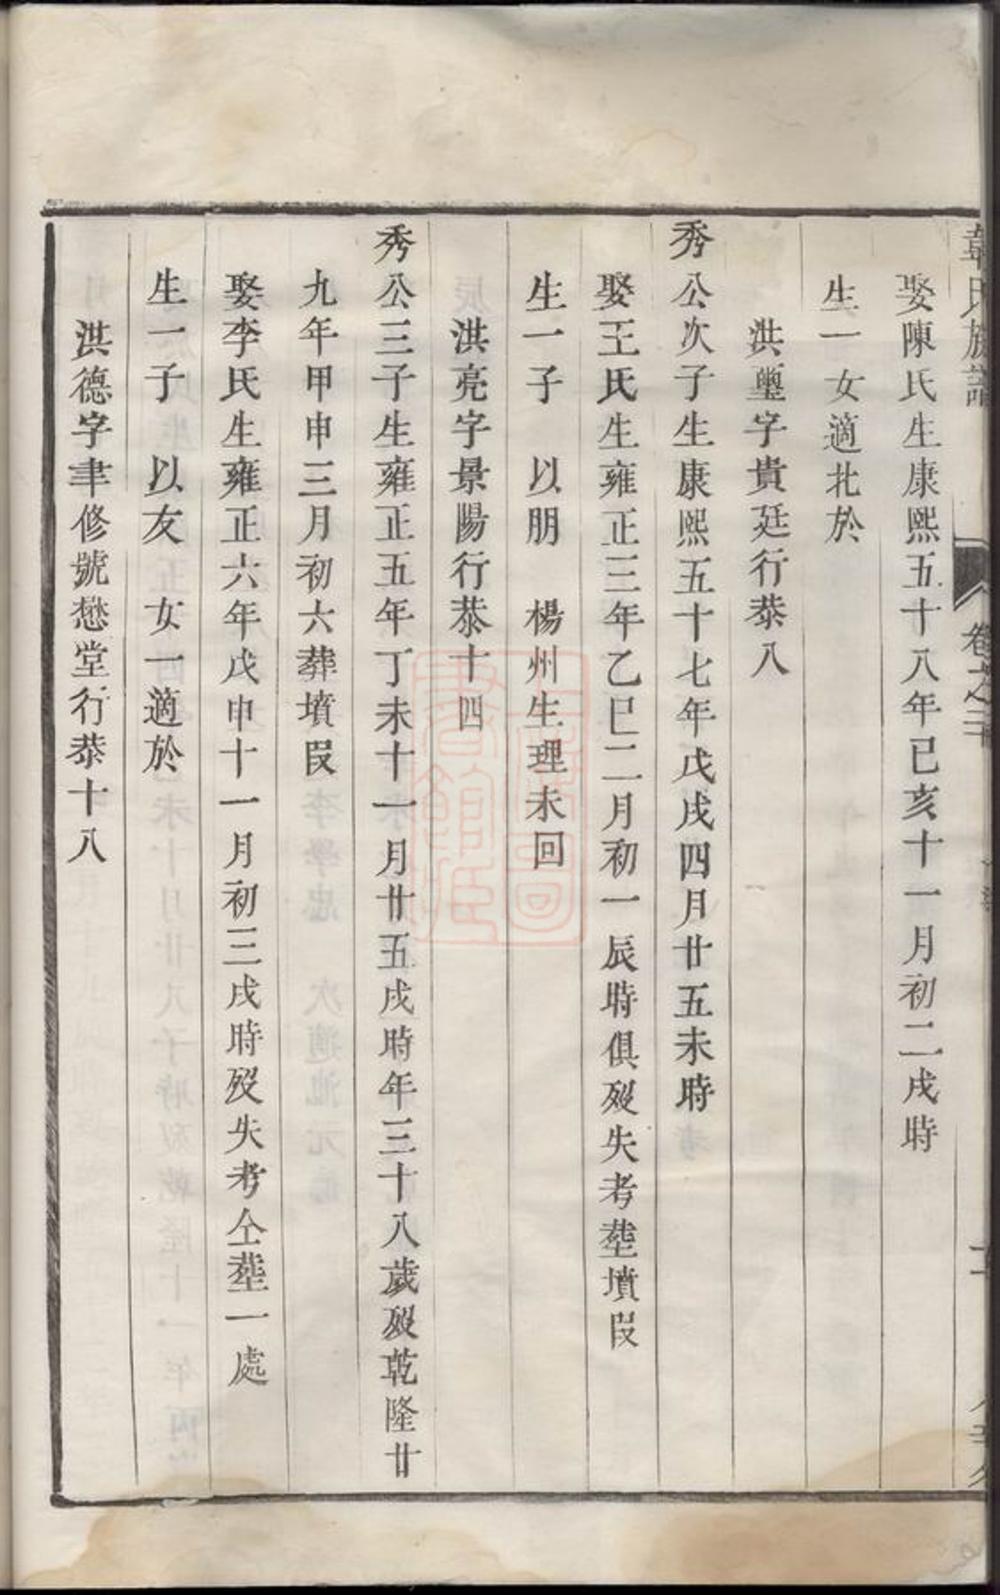 韋氏族譜
卷之二
娶陳氏生康熙五十八年已亥十一月初二戌時
生一女適北於
洪璽字貴廷行恭八
秀公次子生康熙五十七年戊戌四月廿五未時
娶王氏生雍正三年乙巳二月初一辰時俱歿失考塟墳叚
生一子 以朋 楊州生理未回
洪亮字景陽行恭十四
秀公三子生雍正五年丁未十一月廿五戌時年三十八歲歿乾隆廿
九年甲申三月初六葬墳叚
娶李氏生雍正六年戊申十一月初三戌時歿失考仝塟一處
生一子 以友 女一適於
洪德字聿修號懋堂行恭十八